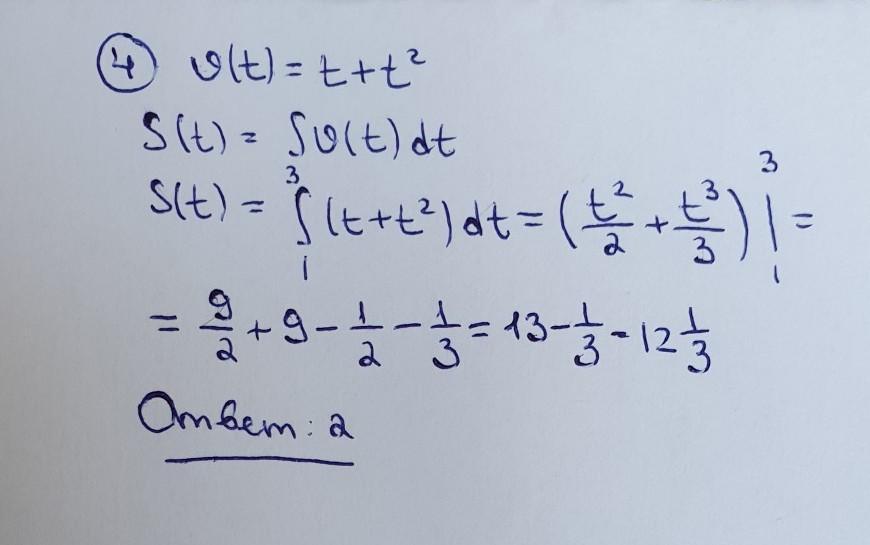 ④ υ(t) = t + t²
S(t) = ∫υ(t)dt
S(t) = ∫₁³ (t + t²) dt = (t²/2 + t³/3) |₁³ =
= 9/2 + 9 - 1/2 - 1/3 = 13 - 1/3 - 12 1/3
Ответ: 2